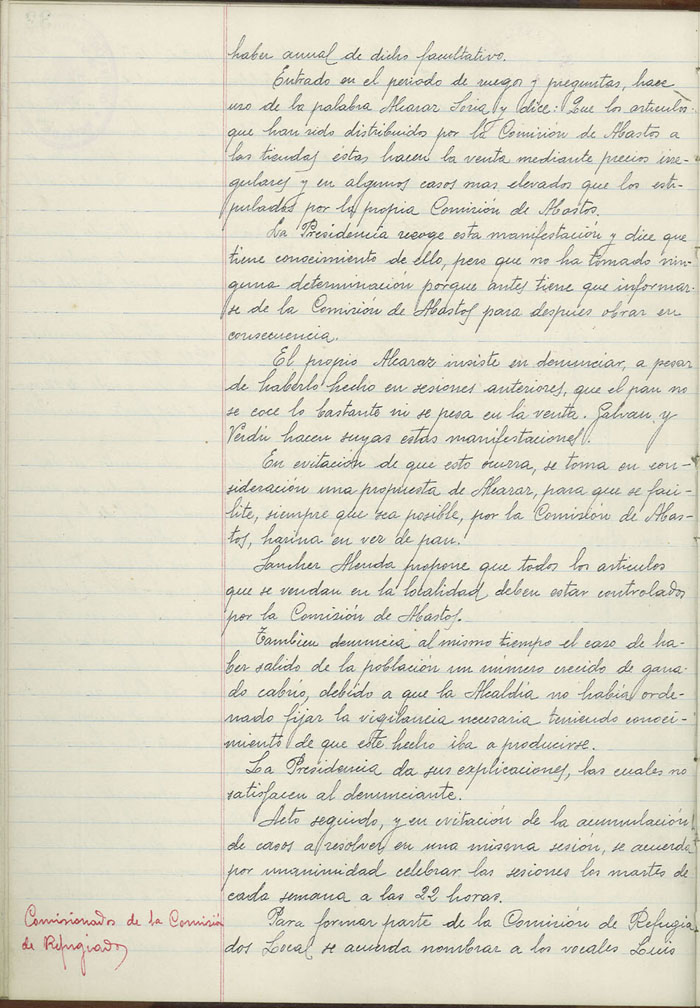 haber anual de dicho facultativo.
Entrado en el periodo de ruegos y preguntas, hace
uso de la palabra Alcaraz Soria y dice: Que los articulos
que han sido distribuidos por la Comisión de Abastos a
las tiendas éstas hacen la venta mediante precios irre-
gulares y en algunos casos mas elevados que los esti-
pulados por la propia Comisión de Abastos.
La Presidencia recoge esta manifestación y dice que
tiene conocimiento de ello, pero que no ha tomado nin-
guna determinación porque antes tiene que informar-
se de la Comisión de Abastos para despues obrar en
consecuencia.
El propio Alcaraz insiste en denunciar, a pesar
de haberlo hecho en sesiones anteriores, que el pan no
se coce lo bastante ni se pesa en la venta. Galvan y
Verdú hacen suyas estas manifestaciones.
En evitación de que esto ocurra, se toma en con-
sideración una propuesta de Alcaraz, para que se faci-
lite, siempre que sea posible, por la Comisión de Abas-
tos, harina en vez de pan.
Sanchez Alenda propone que todos los articulos
que se vendan en la localidad deben estar controlados
por la Comisión de Abastos.
Tambien denuncia al mismo tiempo el caso de ha-
ber salido de la población un número crecido de gana-
do cabrio, debido a que la Alcaldia no habia orde-
nado fijar la vigilancia necesaria teniendo conoci-
miento de que este hecho iba a producirse.
La Presidencia da sus explicaciones, las cuales no
satisfacen al denunciante.
Acto seguido, y en evitación de la acumulación
de casos a resolver en una misma sesión, se acuerda
por unanimidad celebrar las sesiones los martes de
cada semana a las 22 horas.
Comisionados de la Comisión
de Refugiados
Para formar parte de la Comisión de Refugia
dos Local se acuerda nombrar a los vocales Luis